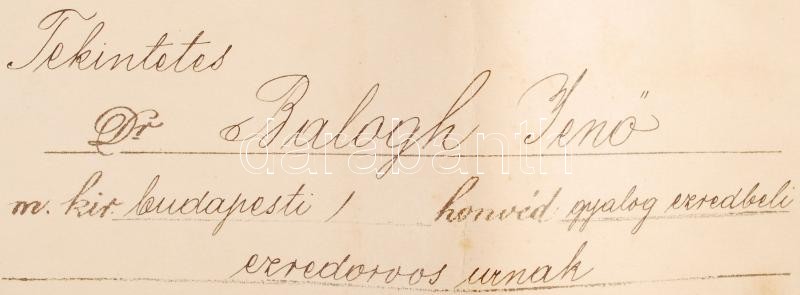 Tekintetes
Dr Balogh Jenő
m. kir. budapesti / honvéd gyalog ezredbeli
ezredorvos urnak
darabanth